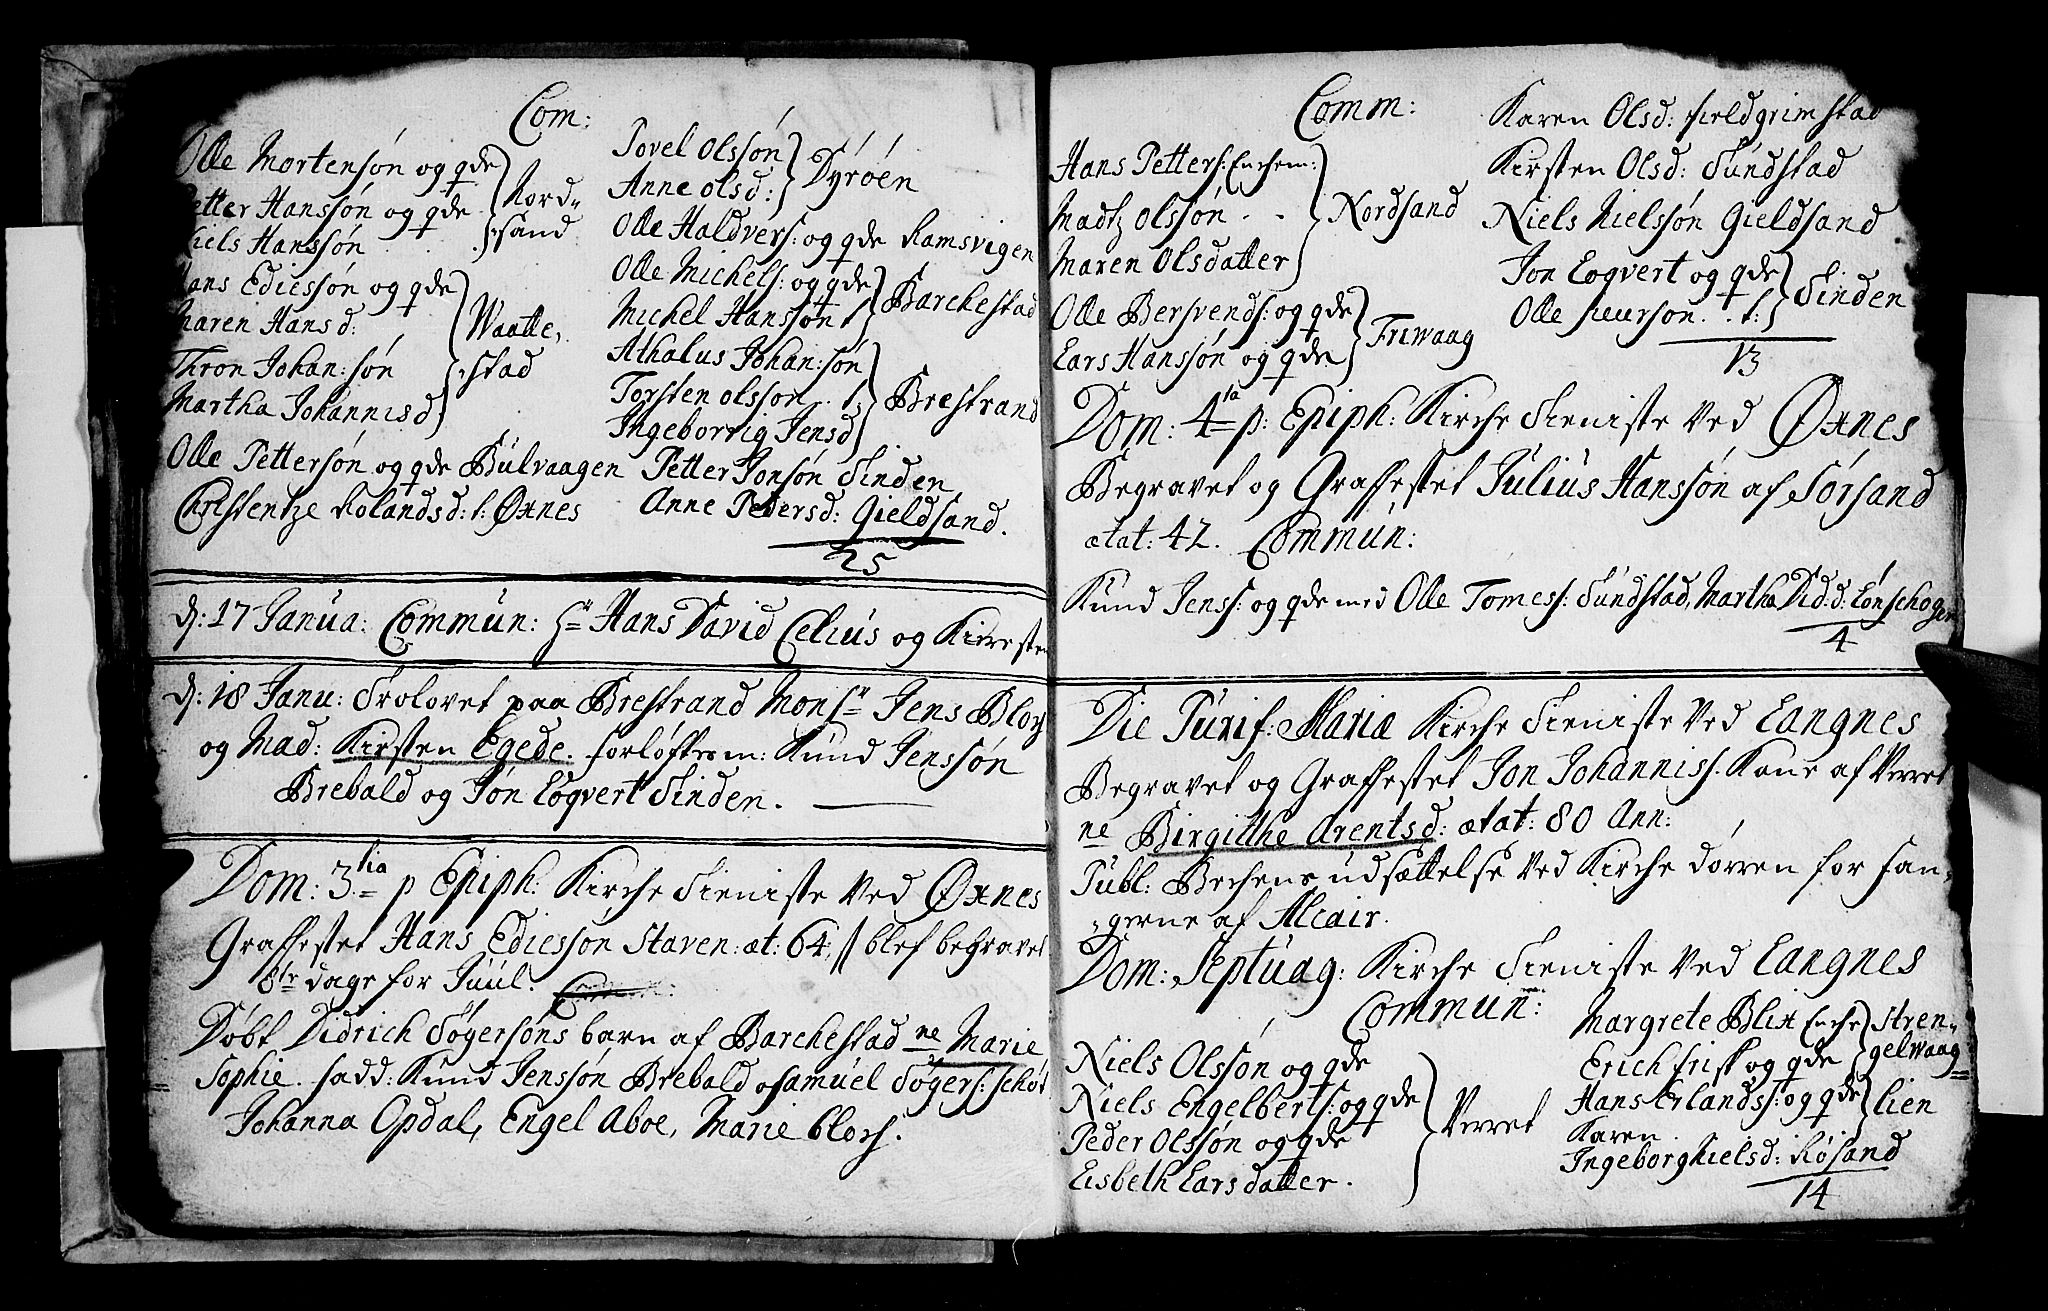 Com:
Olle Mortensøn og qde } Nord-
Petter Hanssøn og qde } sand
Niels Hanssøn
Hans Ediessøn og qde
Maren Hansd: } Waatte,
Thron Johan:søn } stad
Martha Johannisd
Olle Pettersøn og qde Bulvaagen
Christentze Rolandsd: t: Øxnes
Povel Olssøn } Dyrøen
Anne olsd:
Olle Haldvers: og qde Ramsvigen
Olle Michels: og qde } Barchestad
Michel Hanssøn t
Athalus Johan:søn
Torsten olsson . . t: } Brestrand
Ingeborrig Jensd
Petter Jonsøn Tinden
Anne Pedersd: Gieldsand.
25
d: 17 Janua: Commun: Hr Hans David Celius og Kieresten
d: 18 Janu: Trolovet paa Brestrand Monsr Jens Blox
og Mad: Kirsten Egede. forløftesm: Knud Jenssøn
Brebald og Jón Logvert Tinden.
Dom: 3tia p Epiph: Kirche Tieniste Ved Øxnes
Graffestet Hans Ediessøn Staven: æt: 64, // blef begravet
8te dage for Juul. Comm:
Døbt Didrich Søgersøns barn af Barchestad ne Marie
Sophie. fadd: Knud Jenssøn Brebald o Samuel Søgers: schøt
Johanna Opdal, Engel Aboe, Marie blors.
Comm:
Hans Petters: Enchem:
Madtz Olssøn . . } Nordsand
Maren Olsdatter
Olle Bersvends: og qde } Friwaag
Lars Hanssøn og qde
Karen Olsd: fieldgrimstad
Kirsten Olsd: Sundstad
Niels Nielssøn Gieldsand
Jon Logvert og qde } Tinden
Olle siurson . . t:
13
Dom: 4ta p: Epiph: Kirche Tieniste Ved Øxnes
Begravet og Graffestet Julius Hanssøn af Sørsand
ætat: 42. Commun:
Knud Jenss: og qde med Olle Tomess: Sundstad, Martha Did:d: Lønschogen
4
Die Purif: Mariæ Kirche Tieniste Ved Langnes
Begravet og Graffestet Jon Johanniss. Kone af Verret
ne Birgithe Arentsd: ætat: 80 Ann:
Publ: Bechens udsættelse Ved Kirche dørren for fan-
gerne af Alcair.
Dom: Septuag: Kirche Tieniste Ved Langnes
Commun:
Niels Olssøn og qde
Niels Engelberts: og qde } Verret
Peder Olssøn og qde
Lisbeth Larsdatter.
Margrete Blix Enche } Stren-
Erich frisk og qde } gelwaag
Hans Erlandss: og qde } lien
Karen .
Ingeborg Nielsd: Røsand
14